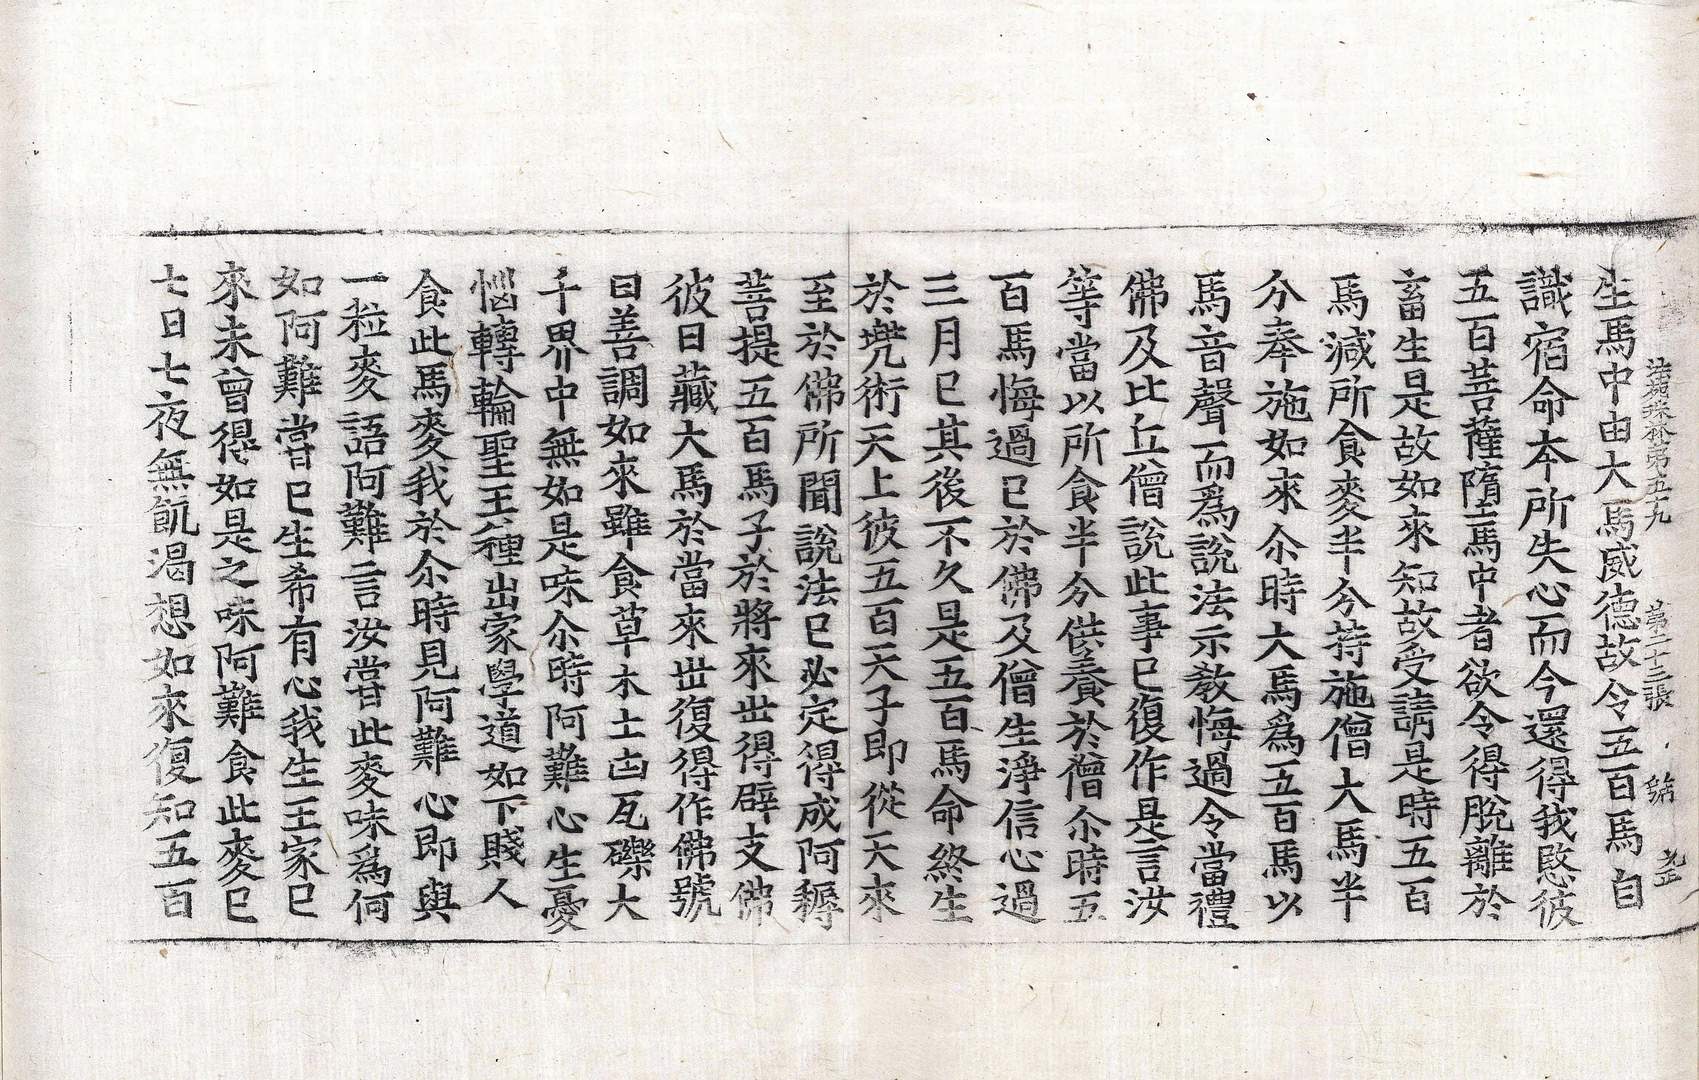 法苑珠林第五十九 第二十三張 號
生馬中由大馬威德故令五百馬自
識宿命本所失心而今還得我愍彼
五百菩薩墮馬中者欲令得脫離於
畜生是故如來知故受請是時五百
馬減所食麥半分持施僧大馬半
分奉施如來尒時大馬爲五百馬以
馬音聲而爲說法示教悔過令當禮
佛及比丘僧說此事已復作是言汝
等當以所食半分供養於僧尒時五
百馬悔過已於佛及僧生淨信心過
三月已其後不久是五百馬命終生
於兠術天上彼五百天子即從天來
至於佛所聞說法已必定得成阿耨
菩提五百馬子於將來世得辟支佛
彼日藏大馬於當來世復得作佛號
曰善調如來雖食草木土凷瓦礫大
千界中無如是味尒時阿難心生憂
惱轉輪聖王種出家學道如下賤人
食此馬麥我於尒時見阿難心即與
一粒麥語阿難言汝嘗此麥味爲何
如阿難嘗已生希有心我生王家已
來未曾得如是之味阿難食此麥已
七日七夜無飢渴想如來復知五百